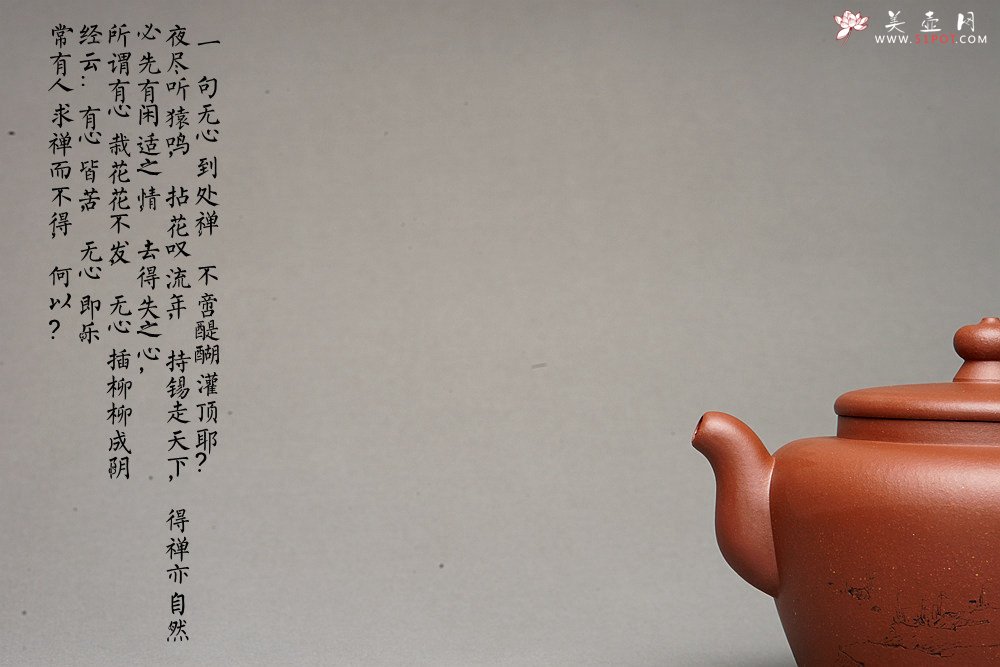 美壶网
WWW.51POT.COM
一句无心到处禅，不啻醍醐灌顶耶？
夜尽听猿鸣，拈花叹流年，持锡走天下，得禅亦自然
必先有闲适之情，去得失之心，
所谓有心栽花花不发，无心插柳柳成阴
经云：有心皆苦，无心即乐
常有人求禅而不得，何以？